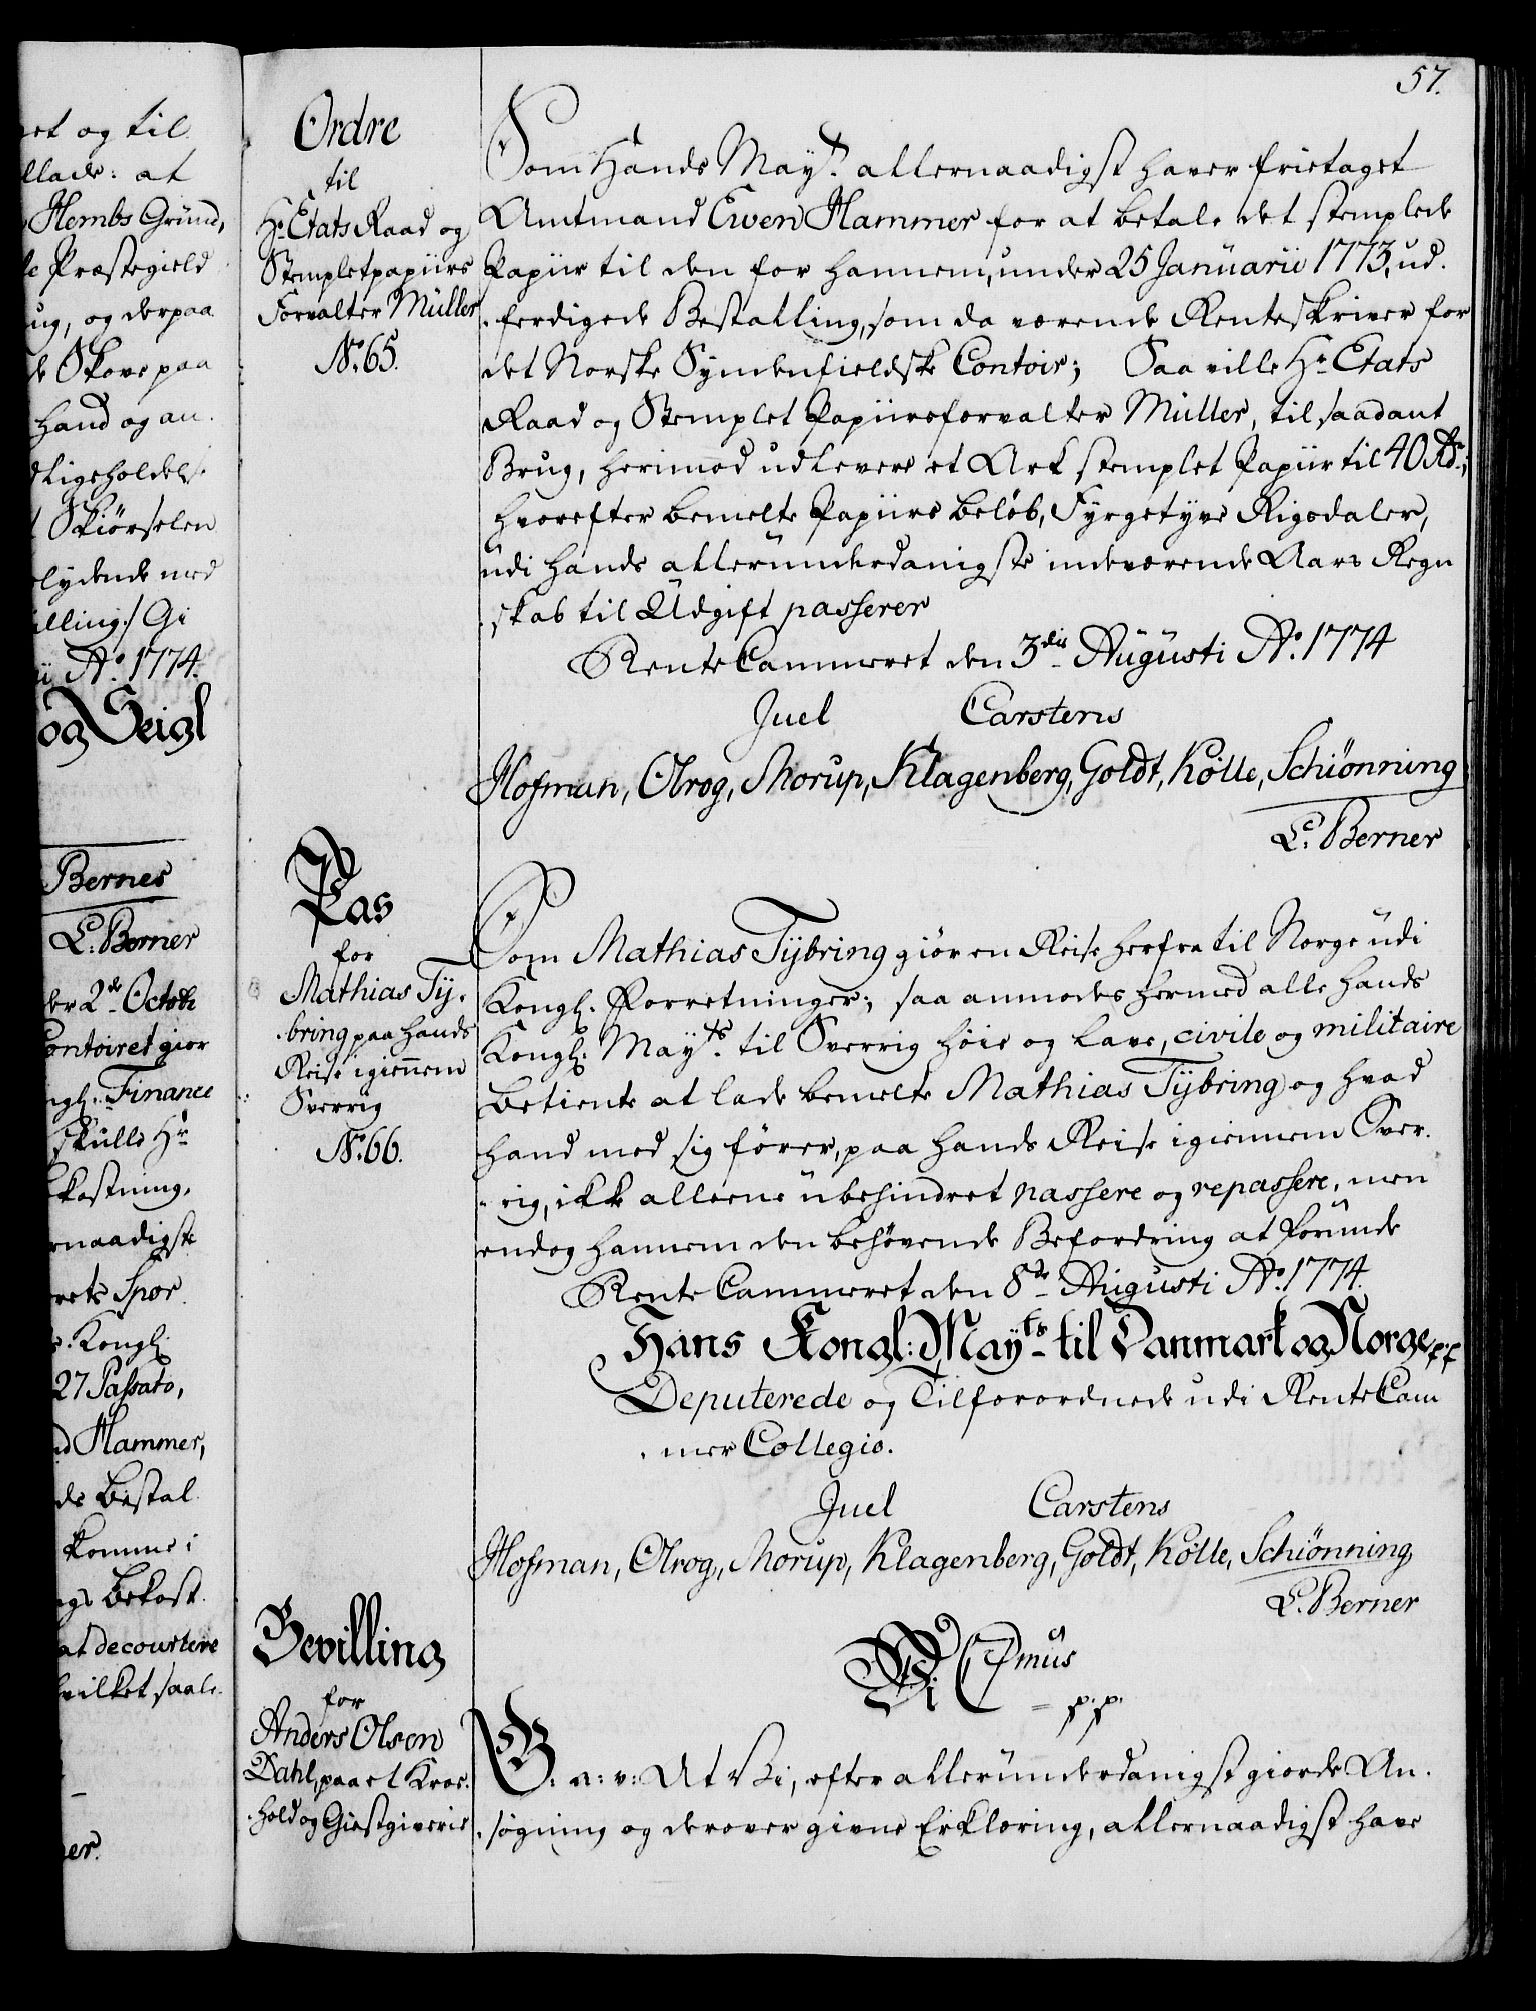 et og til
llade: at
Hembs Grund,
Præstegield
ug, og derpaa
de Skove paa
hand og an
dligeholdelse
Skiörselen
lydende med
illing :/ Gi
ii Aº. 1774.
og Seigl
Bernes
L. Berner
der 2de Octobr
Contoiret gior
ngl. Finance
skulle Hr
kostning,
rnaadigste
rets Spor
Kongl.
27 Passato,
nd Hammer,
de Bestal
komme i
ngs Bekost
at decourtere
hvilket saale
er.
57.
Ordre
til
Hr. Etats Raad og
Stempletpapiirs
Forvalter Müller
No. 65.
Som Hands Mayt. allernaadigst haver frietaget
Amtmand Ewen Hammer for at betale det stemplede
Papiir til den for hannem, under 25 Januarii 1773, ud-
-ferdigede Bestalling, som da værende Renteskriver for
det Norske Syndenfieldske Contoir; Saa ville Hr. Etats
Raad og Stemplet Papiirsforvalter Müller, til saadant
Brug, herimod udlevere et Ark stemplet Papiir til 40 Rdr.;
hvorefter bemelte Papiirs beløb, Fyrgetyve Rigsdaler,
udi hands allerunderdanigste indeværende Aars Regn
-skab til Udgift passerer
RenteCammeret den 3die Augusti Aº. 1774
Juel Carstens
Hofman, Olrog, Morup, Klagenberg, Goldt, Kölle, Schiönning
L. Berner
Pas
for
Mathias Ty-
-bring paa hands
Reise igiennem
Sverrig
No. 66.
Som Mathias Tÿbring giör en Reise herfra til Norge udi
Kongl. Forretninger; saa anmodes hermed alle Hands
Kongl. Mayts. til Sverrig höie og lave, civile og militaire
Betiente at lade bemelte Mathias Tÿbring og hvad
hand med sig fører, paa hands Reise igiennem Sver-
-rig, ikke alleene ubehindret passere og repassere, men
endog hannem den behövende Befordring at forunde
RenteCammeret den 8de Augusti Aº. 1774.
Hans Kongl: Mayts til Danmark og Norge pp
Deputerede og Tilforordnede udi RenteCam
-mer Collegio.
Juel Carstens
Hofman, Olrog, Morup, Klagenberg, Goldt, Kölle, Schiönning
L. Berner
Bevilling
for
Anders Olsen
Dahl, paa et Kroe-
-hold og Giestgiverie
Wi C7mus
p.p.
G: a: v: At Vi, efter allerunderdanigst giorde An-
-søgning og derover givne Erklæring, allernaadigst have